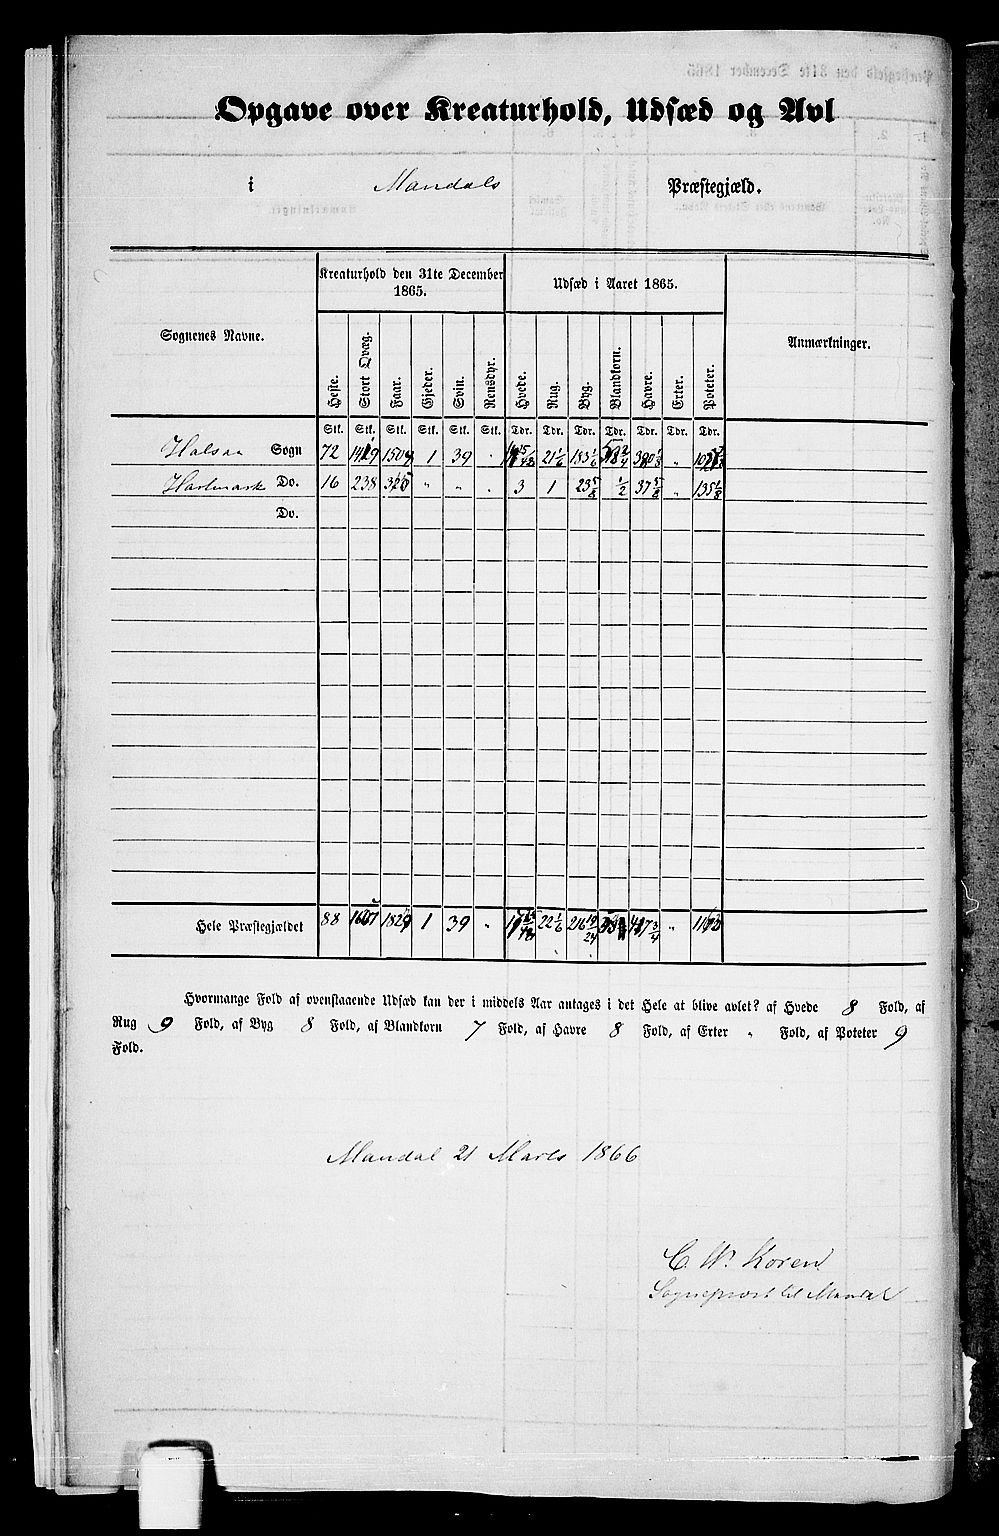 Opgave over Kreaturhold, Udsæd og Avl
i Mandals Præstegjæld.
Sognenes Navne.
Kreaturhold den 31te December 1865.
Udsæd i Aaret 1865.
Anmærkninger.
Heste. Stort Qvæg. Faar. Gjeder. Svin. Rensdyr. Hvede. Rug. Byg. Blandkorn. Havre. Erter. Poteter.
Stk. Stk. Stk. Stk. Stk. Stk. Tdr. Tdr. Tdr. Tdr. Tdr. Tdr. Tdr.
Halsaa Sogn 72 1 39 " 21 1/6 "
Hartmark Do. 16 238 " " " 3 1 23 5/8 1/2 37 5/8 " 135 1/8
Do.
Hele Præstegjældet 88 1 39 " 22 1/6 216 19/24 "
Hvormange Fold af ovenstaaende Udsæd kan der i middels Aar antages i det Hele at blive avlet? af Hvede 8 Fold, af
Rug 9 Fold, af Byg 8 Fold, af Blandkorn 7 Fold, af Havre 8 Fold, af Erter " Fold, af Poteter 9
Fold.
Mandal 21 Marts 1866
C. W. Koren
Sognepræst til Mandal